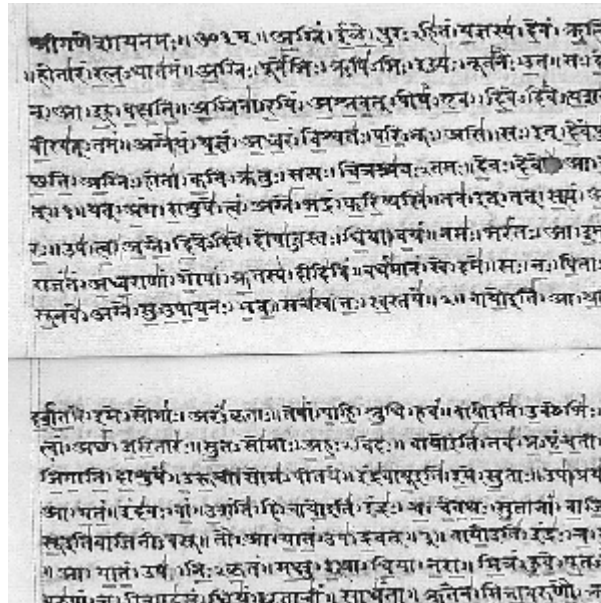 श्रीगणेशायनमः॥ॐ॥अग्निं। ईळे। पुरःऽहितं। यज्ञस्य। देवं। ऋत्वि
॥होतारं। रत्नऽधातमं॥अग्निः। पूर्वेभिः। ऋषिऽभिः। ईड्यः। नूतनैः। उत॥सः। दे
न्। आ। इह। वक्षति॥अग्निना। रयिं। अश्नवत्। पोषं। एव। दिवेऽदिवे॥यशसं
वीरवत्ऽतमं॥अग्ने। यं। यज्ञं। अध्वरं। विश्वतः। परिऽभूः। असि॥सः। इत्। देवेषु
गच्छति। अग्निः। होता। कविऽक्रतुः। सत्यः। चित्रश्रवःऽतमः॥देवः। आ।
त्॥१॥यत्। अंग। दाशुषे। त्वं। अग्ने। भद्रं। करिष्यसि॥तव। इत्। तत्। सत्यं। अं
रः॥उप। त्वा। अग्ने। दिवेऽदिवे। दोषाऽवस्तः। धिया। वयं॥नमः। भरंतः। आ। इम
राजंतं। अध्वराणां। गोपां। ऋतस्य। दीदिविं॥वर्धमानं। स्वे। दमे॥सः। नः। पिताऽ
सूनवे। अग्ने। सुऽउपायनः। भव॥सचस्व। नः। स्वस्तये॥२॥वायो इति। आ। या
दर्शत। इमे। सोमाः। अरंऽकृताः॥तेषां। पाहि। श्रुधि। हवं॥वायो इति। उक्थेभिः
त्वां। अच्छ। जरितारः॥सुतऽसोमाः। अहःऽविदः॥वायो इति। तव। प्रऽपृंचती
जिगाति। दाशुषे। उरूची। सोमऽपीतये॥इंद्रवायू इति। इमे। सुताः॥उप। प्रयः
आ। गतं॥इंदवः। वां। उशंति। हि॥वायो इति। इंद्रः। च। चेतथः। सुतानां। वाजि
सू इति वाजिनीऽवसू॥तौ। आ। यातं। उप। द्रवत्॥३॥वायो इति। इंद्रः। च। सु
॥आ। यातं। उप। निःऽकृतं॥मक्षु। इत्था। धिया। नरा॥मित्रं। हुवे। पूतऽ
वरुणं। च। रिशादसं॥धियं। घृताचीं। साधंता॥ऋतेन। मित्रावरुणौ। ऋ